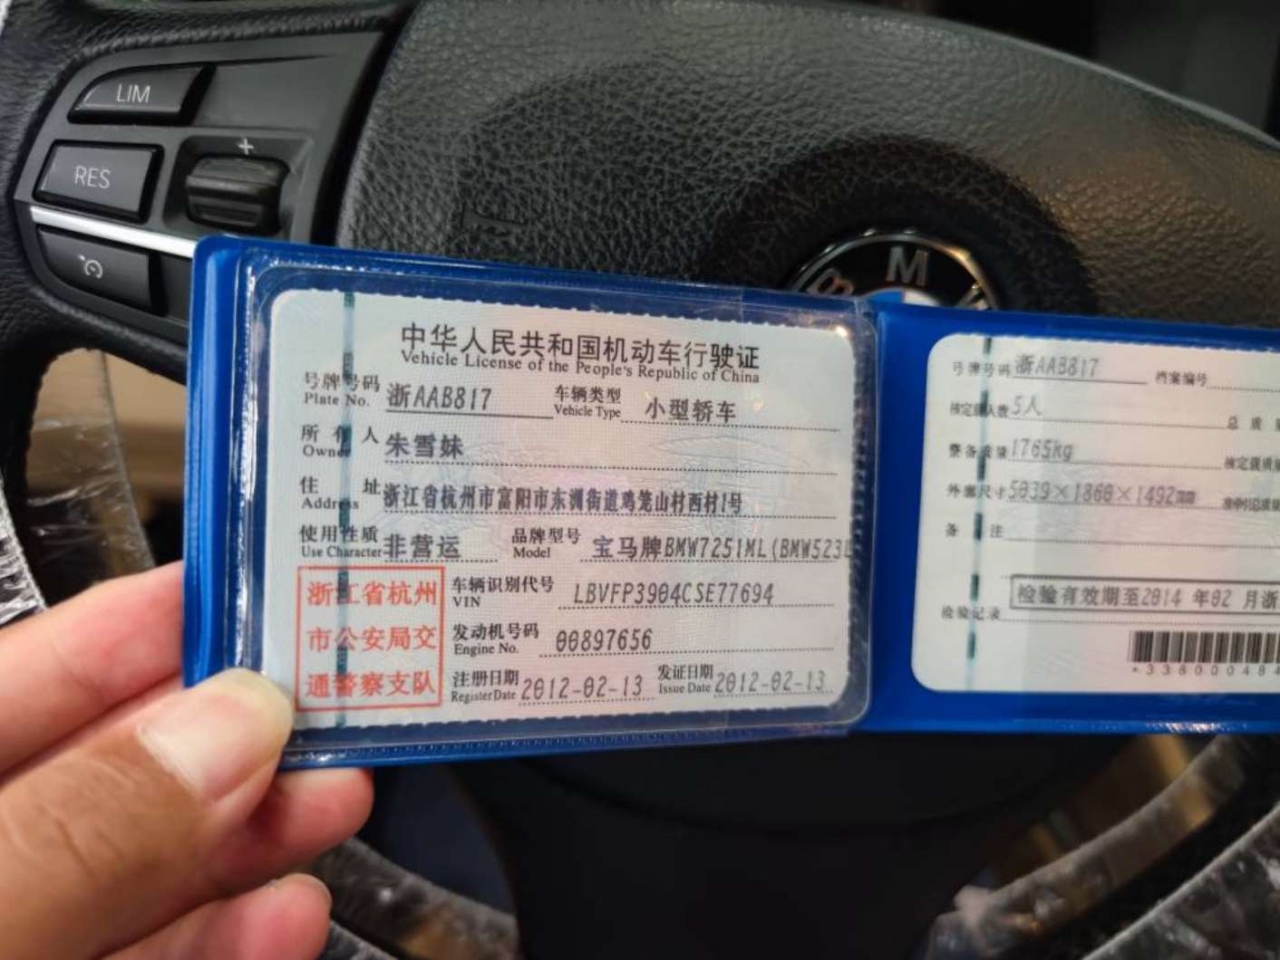 LIM
RES
+
BMW
中华人民共和国机动车行驶证
Vehicle License of the People's Republic of China
号牌号码 Plate No. 浙AAB817 车辆类型 Vehicle Type 小型轿车
所有人 Owner 朱雪妹
住址 Address 浙江省杭州市富阳市东洲街道鸡笼山村西村1号
使用性质 Use Character 非营运 品牌型号 Model 宝马牌BMW7251ML(BMW523L
浙江省杭州
市公安局交
通警察支队
车辆识别代号 VIN LBVFP3904CSE77694
发动机号码 Engine No. 00897656
注册日期 Register Date 2012-02-13 发证日期 Issue Date 2012-02-13
号牌号码 浙AAB817 档案编号
核定载人数 5人 总质量
整备质量 1765kg 核定载质量
外廓尺寸 5039×1860×1492mm 准牵引总质量
备注
检验记录 检验有效期至2014年02月浙
*33800048